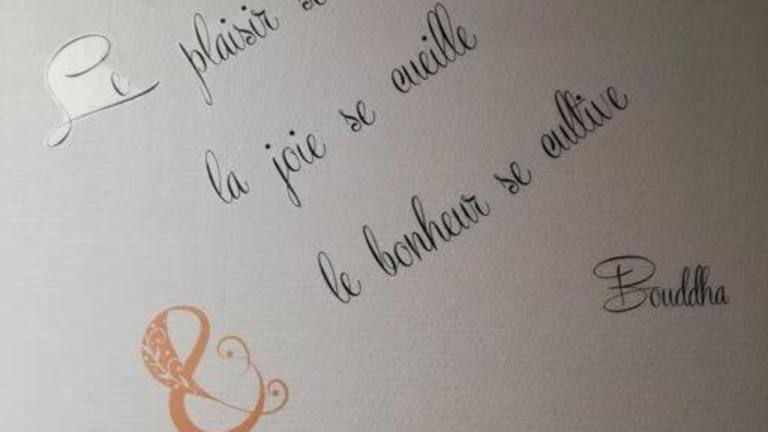 Le plaisir se
la joie se cueille
le bonheur se cultive
Bouddha
&